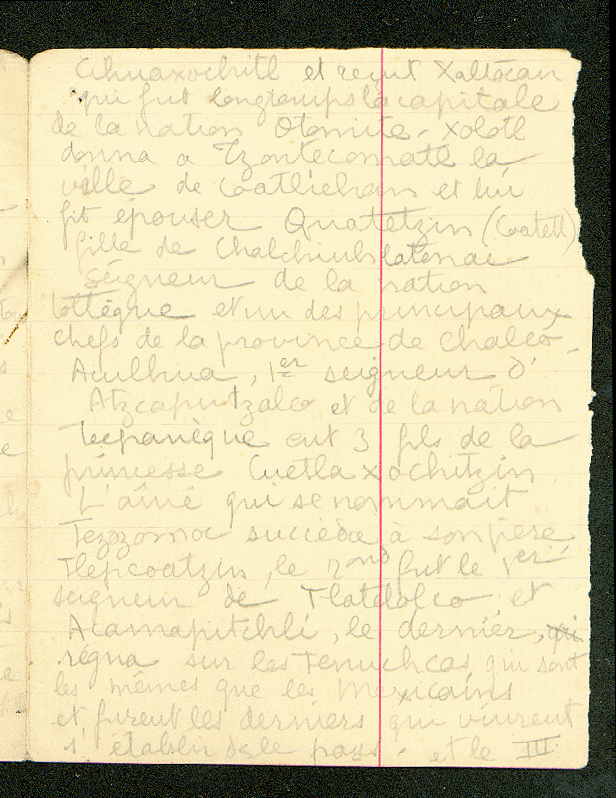 Cihuaxochitl et reçut Xaltocan
qui fut longtemps la capitale
de la nation Otomite. Xolotl
donna a Tzontecomatl la
ville de Coatlichan et lui
fit épouser Quatetzin (Coatetl)
fille de Chalchiuhtlatonac
seigneur de la nation
toltèque et un des principaux
chefs de la province de Chalco.
Aculhua, 1er seigneur d'
Atzcaputzalco et de la nation
Tecpanèque eut 3 fils de la
princesse Cuetlaxochitzin.
L'aîné qui se nommait
Tezozomoc succéda à son père
Tlepcoatzin, le 2nd fut le 1er
seigneur de Tlatelolco et
Acamapitchli, le dernier, qui
régna sur les Tenuchcas qui sont
les mêmes que les Mexicains
et furent les derniers qui vinrent
s'établir ds le pays. et le III